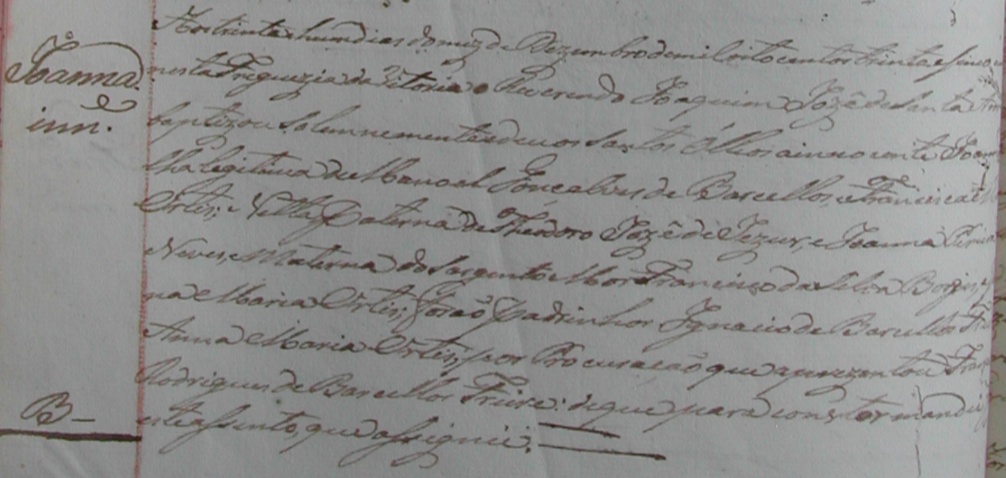 Joanna.
inn.
Aos trinta e hum dias do mez de Dezembro de mil oito centos trinta e sinco
nesta Freguezia da Vitoria o Reverendo Joaquim Jozé de Santa
baptizou solennemente e deu os Santos Óleos a innocente Joan
lha legitima de Manoel Gonçalves de Barcellos, e Francisca
Ortis; Netta Paterna de Theodoro Jozé de Jezus, e Joanna
Neves, e Materna do Sargento Mor Francisco da Silva Borges, e
na Maria Ortis; forão Padrinhos Ignacio de Barcellos
Anna Maria Ortis, por Procuracão que aprezentou Fran
Rodrigues de Barcellos Freire: de que para constar mandei
este assento, que assignei.
B